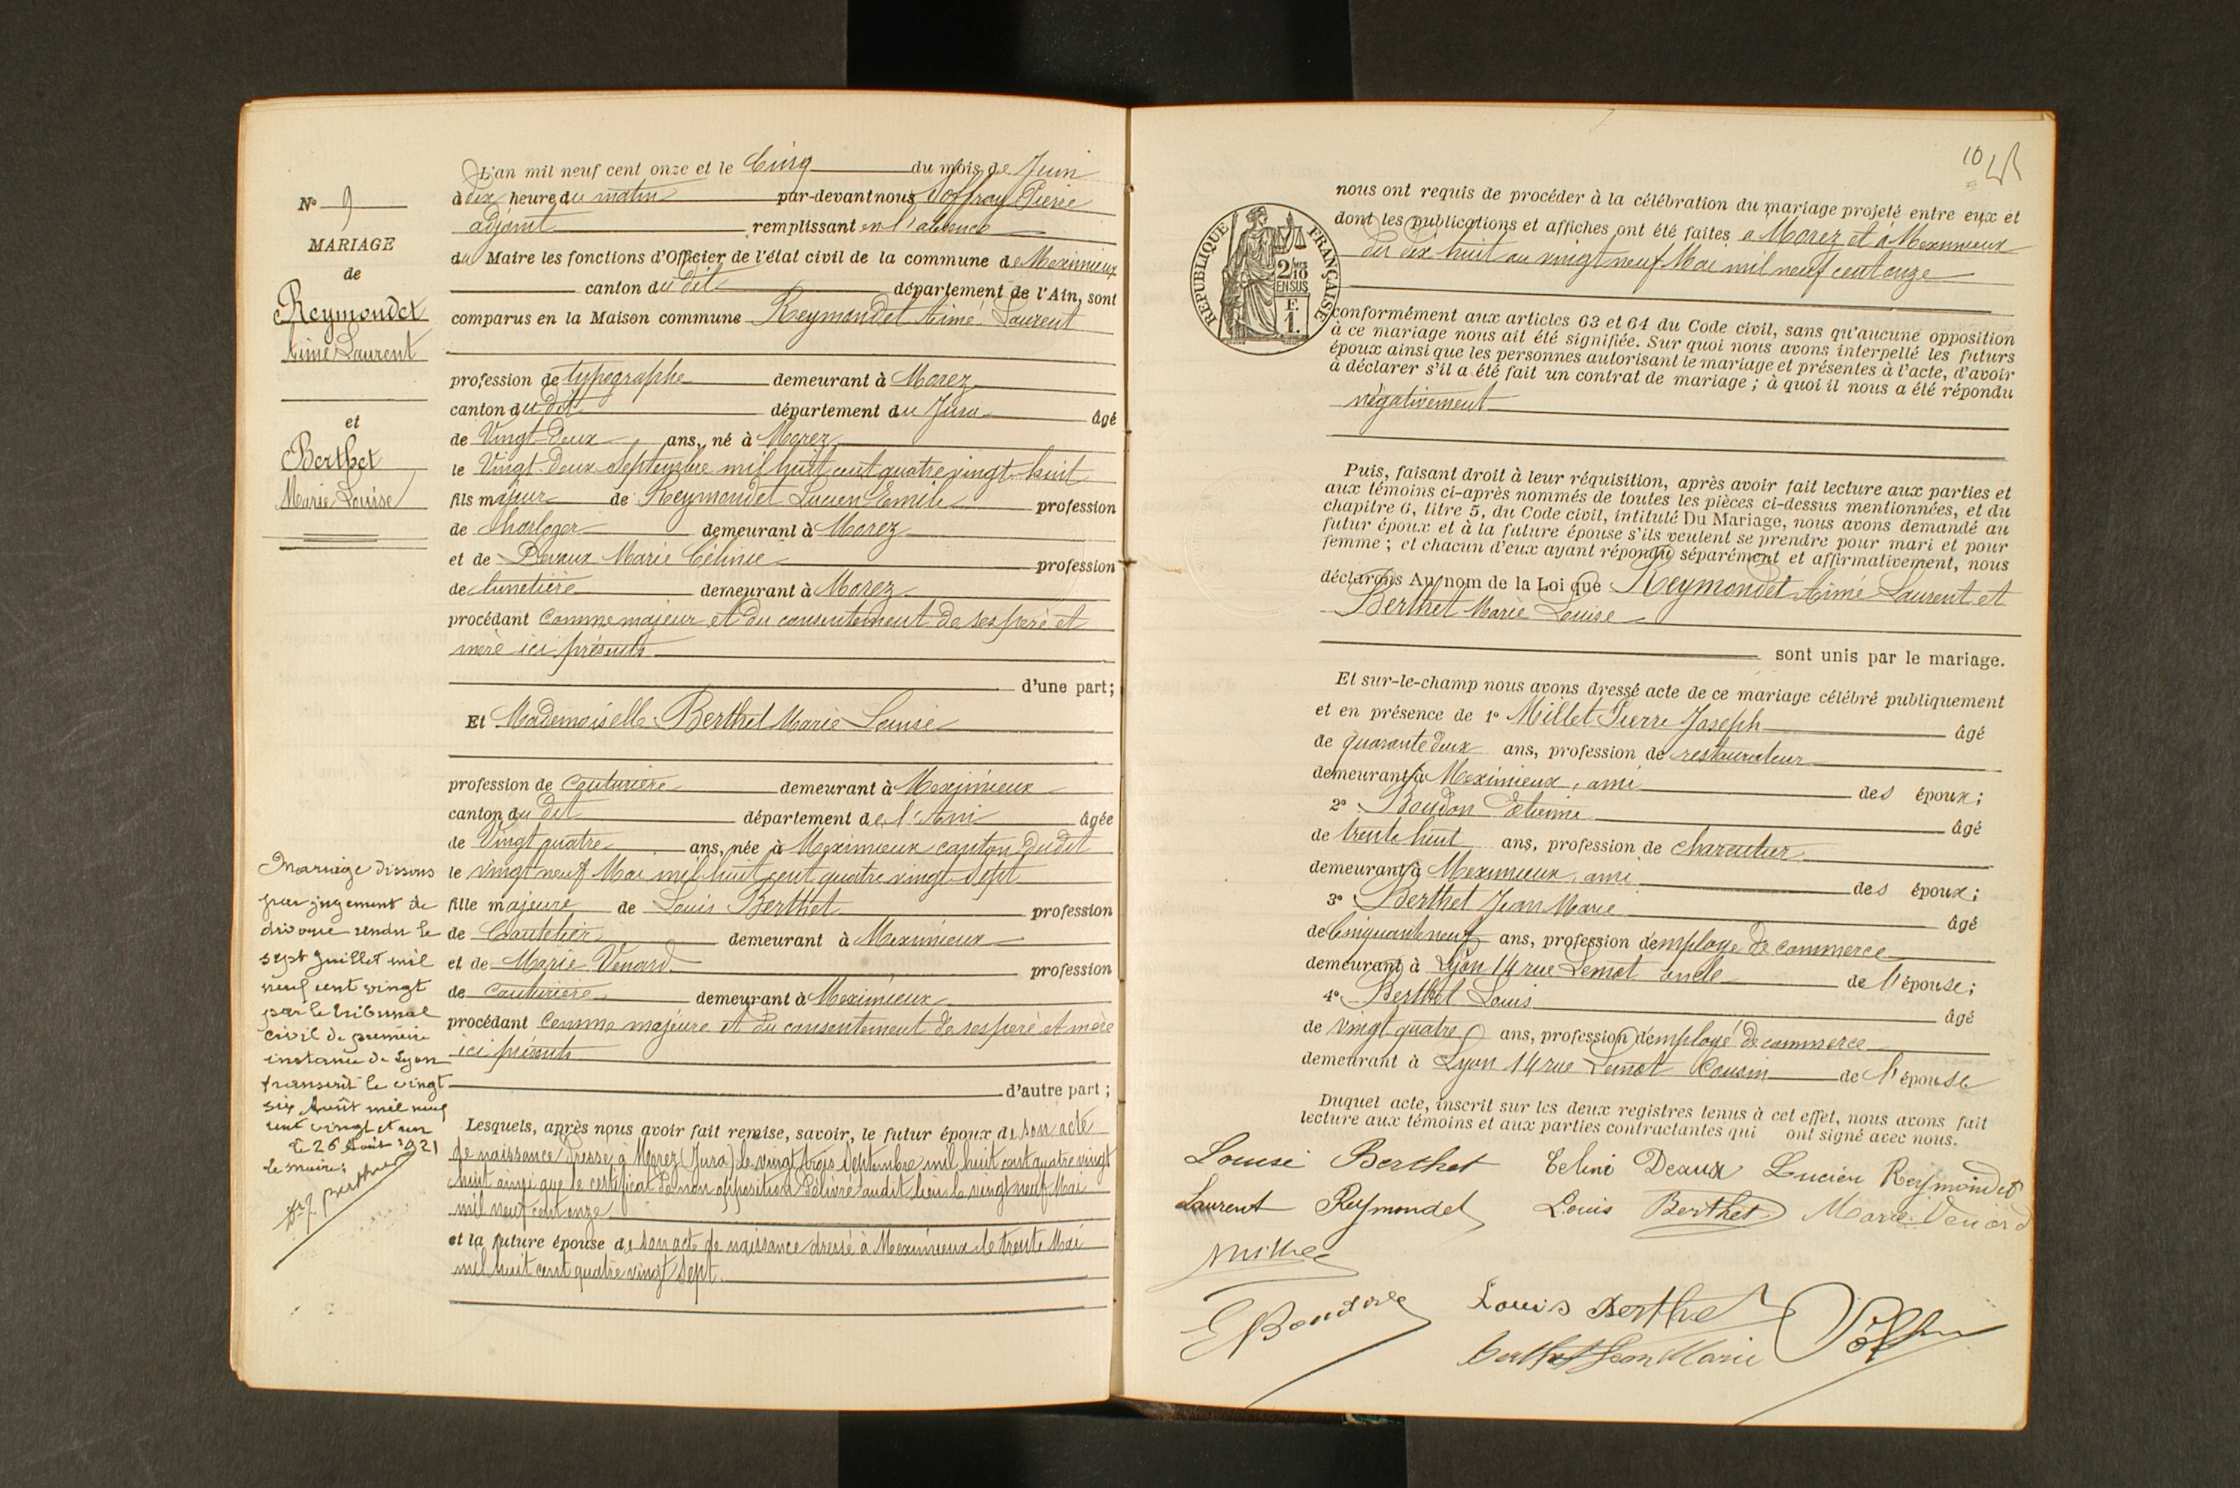 N° 9
MARIAGE
de
Reymondet
Aimé Laurent
et
Berthet
Marie Louise
Mariage dissous
par jugement de
divorce rendu le
sept Juillet mil
neuf cent vingt
par le tribunal
civil de première
instance de Lyon
transcrit le vingt
six Août mil neuf
cent vingt et un
Le 26 Août 1921
Le maire:
L'an mil neuf cent onze et le Cinq du mois de Juin
à dix heure du matin par-devant nous Joffray Pierre
adjoint remplissant en l'absence
du Maire les fonctions d'Officier de l'état civil de la commune de Meximieux
canton du dit département de l'Ain, sont
comparus en la Maison commune Reymondet Aimé Laurent
profession de typographe demeurant à Morez
canton du dit département du Jura âgé
de Vingt-Deux ans, né à Morez
le Vingt-Deux Septembre mil huit cent quatre vingt-huit
fils majeur de Reymondet Lucien Emile profession
de horloger demeurant à Morez
et de Devaux Marie Céline profession
de lunetière demeurant à Morez
procédant comme majeur et du consentement de ses père et
mère ici présents
d'une part;
Et Mademoiselle Berthet Marie Louise
profession de couturière demeurant à Meximieux
canton du dit département de l'Ain âgée
de Vingt quatre ans, née à Meximieux canton dudit
le vingt neuf Mai mil huit cent quatre vingt sept
fille majeure de Louis Berthet profession
de demeurant à Meximieux
et de Marie Venard profession
de couturière demeurant à Meximieux
procédant comme majeure et du consentement de ses père et mère
ici présents
d'autre part;
Lesquels, après nous avoir fait remise, savoir, le futur époux de son acte
de naissance dressé à Morez (Jura) le vingt trois Septembre mil huit cent quatre vingt
huit ainsi que le certificat de non opposition délivré audit lieu le vingt neuf Mai
mil neuf cent onze
et la future épouse de son acte de naissance dressé à Meximieux le trente Mai
mil huit cent quatre vingt sept.
10
REPUBLIQUE FRANÇAISE
2/10
EN SUS
F.
1.
nous ont requis de procéder à la célébration du mariage projeté entre eux et
dont les publications et affiches ont été faites à Morez et à Meximieux
du dix huit au vingt neuf Mai mil neuf cent onze
conformément aux articles 63 et 64 du Code civil, sans qu'aucune opposition
à ce mariage nous ait été signifiée. Sur quoi nous avons interpellé les futurs
époux ainsi que les personnes autorisant le mariage et présentes à l'acte, d'avoir
à déclarer s'il a été fait un contrat de mariage; à quoi il nous a été répondu
négativement
Puis, faisant droit à leur réquisition, après avoir fait lecture aux parties et
aux témoins ci-après nommés de toutes les pièces ci-dessus mentionnées, et du
chapitre 6, titre 5, du Code civil, intitulé Du Mariage, nous avons demandé au
futur époux et à la future épouse s'ils veulent se prendre pour mari et pour
femme; et chacun d'eux ayant répondu séparément et affirmativement, nous
déclarons Au nom de la Loi que Reymondet Aimé Laurent et
Berthet Marie Louise
sont unis par le mariage.
Et sur-le-champ nous avons dressé acte de ce mariage célébré publiquement
et en présence de 1° Millet Pierre Joseph âgé
de quarante deux ans, profession de restaurateur
demeurant à Meximieux, ami des époux;
2° Boudon Etienne âgé
de trente huit ans, profession de charcutier
demeurant à Meximieux, ami des époux;
3° Berthet Jean Marie âgé
de Cinquante neuf ans, profession d'employé de commerce
demeurant à Lyon 14 rue Lemot oncle de l'épouse;
4° Berthet Louis âgé
de vingt quatre ans, profession d'employé de commerce
demeurant à Lyon 14 rue Lemot Cousin de l'épouse
Duquel acte, inscrit sur les deux registres tenus à cet effet, nous avons fait
lecture aux témoins et aux parties contractantes qui ont signé avec nous.
Louise Berthet Celine Deaux Lucien Reymondet
Laurent Reymondet Louis Berthet Marie Venard
Millet
E Boudon Louis Berthet
Berthet Jean Marie